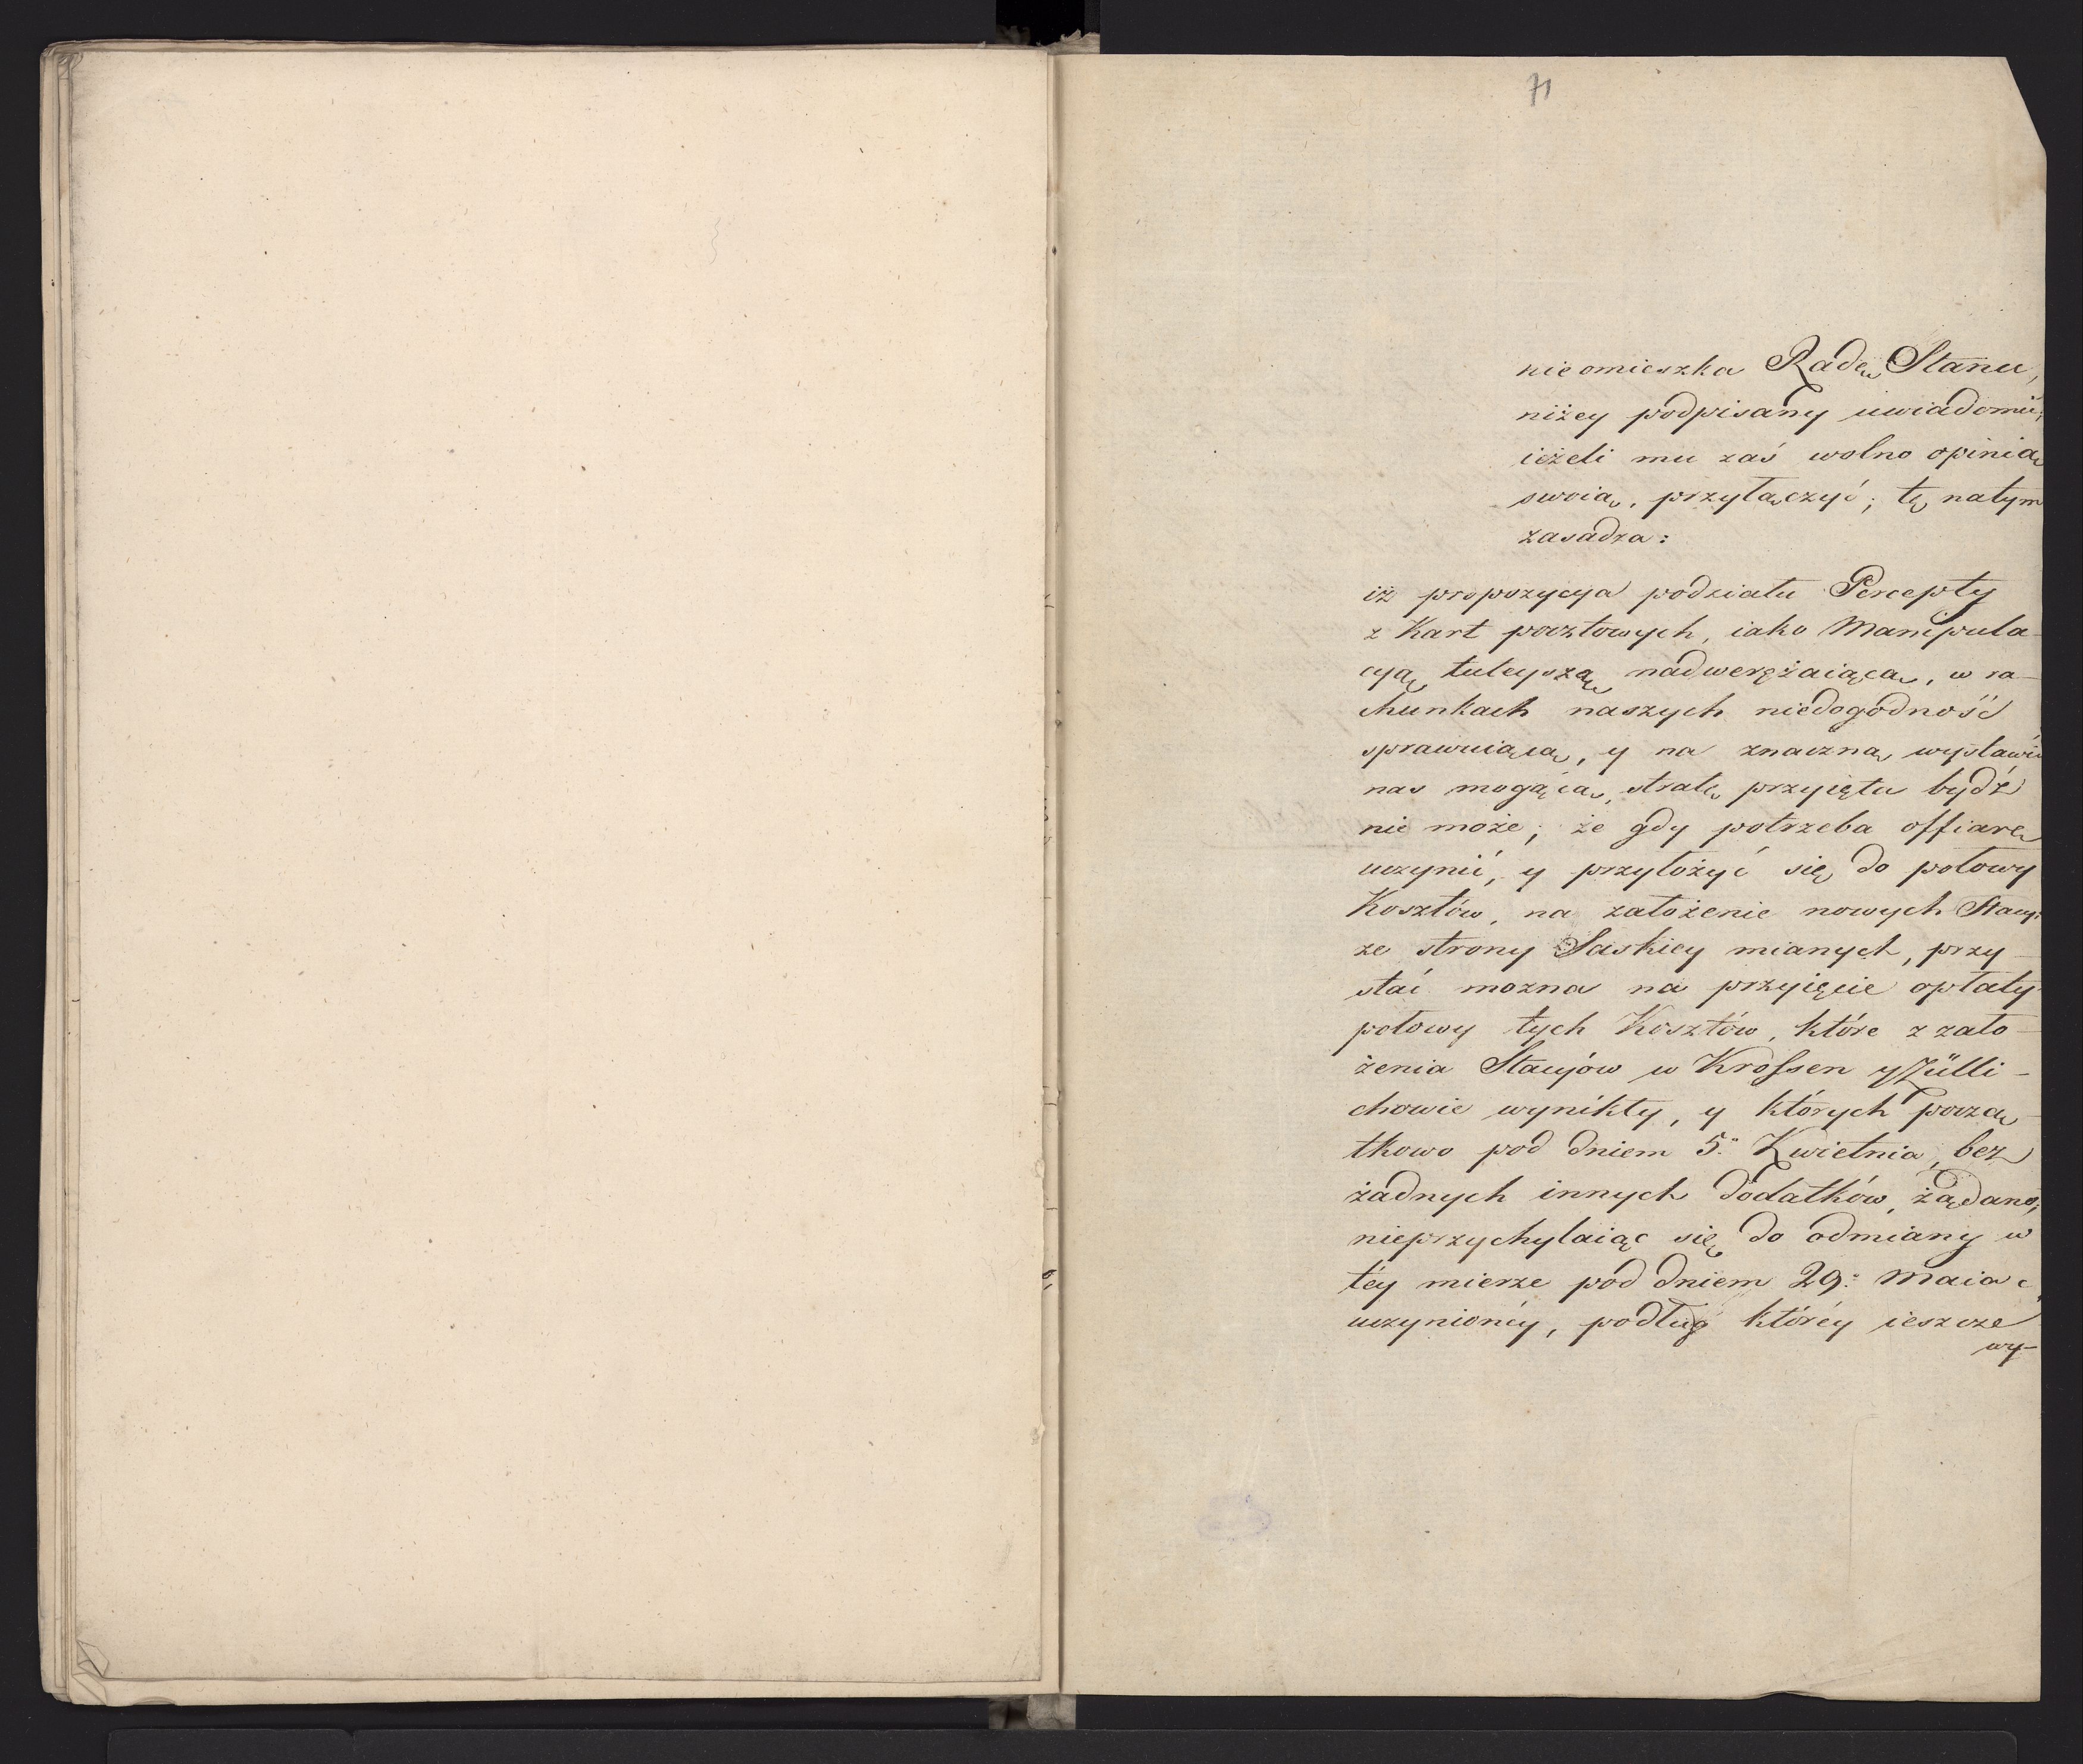 71
nieomieszka Radę Stanu,
niżey podpisany uwiadomić;
ieżeli mu zaś wolno opinią
swoią, przyłączyć; tę natym
zasadza:
iż propozycya podziału Percepty
z Kart pocztowych, iako Manipula-
cyą tuteyszą nadwerężaiąca, w ra-
chunkach naszych niedogodność
sprawuiąca, y na znaczną wystawić
nas mogąca, stratę przyięta bydź
nie może; że gdy potrzeba offiarę
uczynić, y przyłożyć się do połowy
Kosztów, na założenie nowych Stacyi
ze strony Saskiey mianych, przy-
stać mozna na przyięcie opłaty
połowy tych Kosztów, które z zało-
żenia Stacyów w Krossen y Zülli-
chowie wynikły, y których począ-
tkowo pod dniem 5º Kwietnia, bez
żadnych innych dodatków, żądano;
nieprzychylaiąc się do odmiany w
téy mierze pod dniem 29: Maia c
uczynionéy, podług któréy ieszcze
wy-